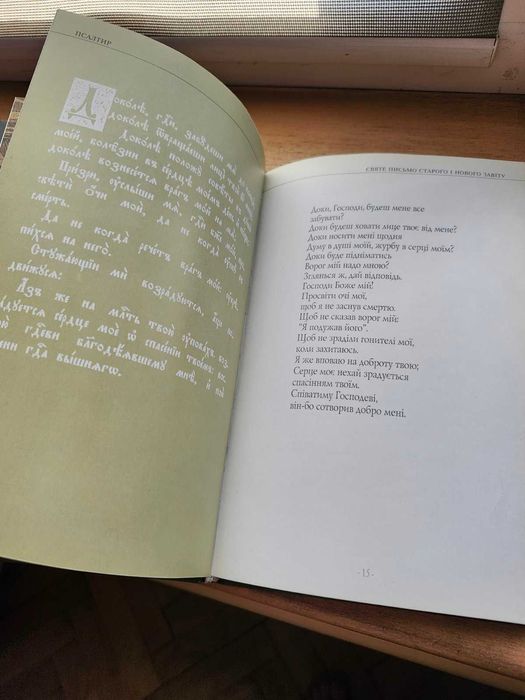 ПСАЛТИР
Доколѣ, гдⷭ҇и, забꙋдеши мѧ до
доколѣ ѿвращаеши лице твое ѿ
Доколѣ положꙋ
мой, болѣзни въ сердцѣ моемъ день
доколѣ вознесетсѧ врагъ мой на мѧ
Призри, оуслыши мѧ, гдⷭ҇и бже мой
свѣти очи мои, да не когда
смерть.
Да не когда речетъ врагъ мой:
пихсѧ на него.
Стꙋжающїи ми возрадꙋютсѧ, аще
движꙋсѧ:
Азъ же на млⷭ҇ть твою оуповахъ воз
дꙋетсѧ сердце мое ѡ спасенїи твоемъ:
гдⷭ҇еви благодѣѧвшемꙋ мнѣ, и пою
гдⷭ҇а вышнѧгѡ.
СВЯТЕ ПИСЬМО СТАРОГО І НОВОГО ЗАВІТУ
Доки, Господи, будеш мене все
забувати?
Доки будеш ховати лице твоє від мене?
Доки носити мені щодня
Думу в душі моїй, журбу в серці моїм?
Доки буде підніматись
Ворог мій надо мною?
Зглянься ж, дай відповідь.
Господи Боже мій!
Просвіти очі мої,
щоб я не заснув смертю.
Щоб не сказав ворог мій:
"Я подужав його".
Щоб не зраділи гонителі мої,
коли захитаюсь.
Я же вповаю на доброту твою;
Серце моє нехай зрадується
спасінням твоїм.
Співатиму Господеві,
він-бо сотворив добро мені.
-15-